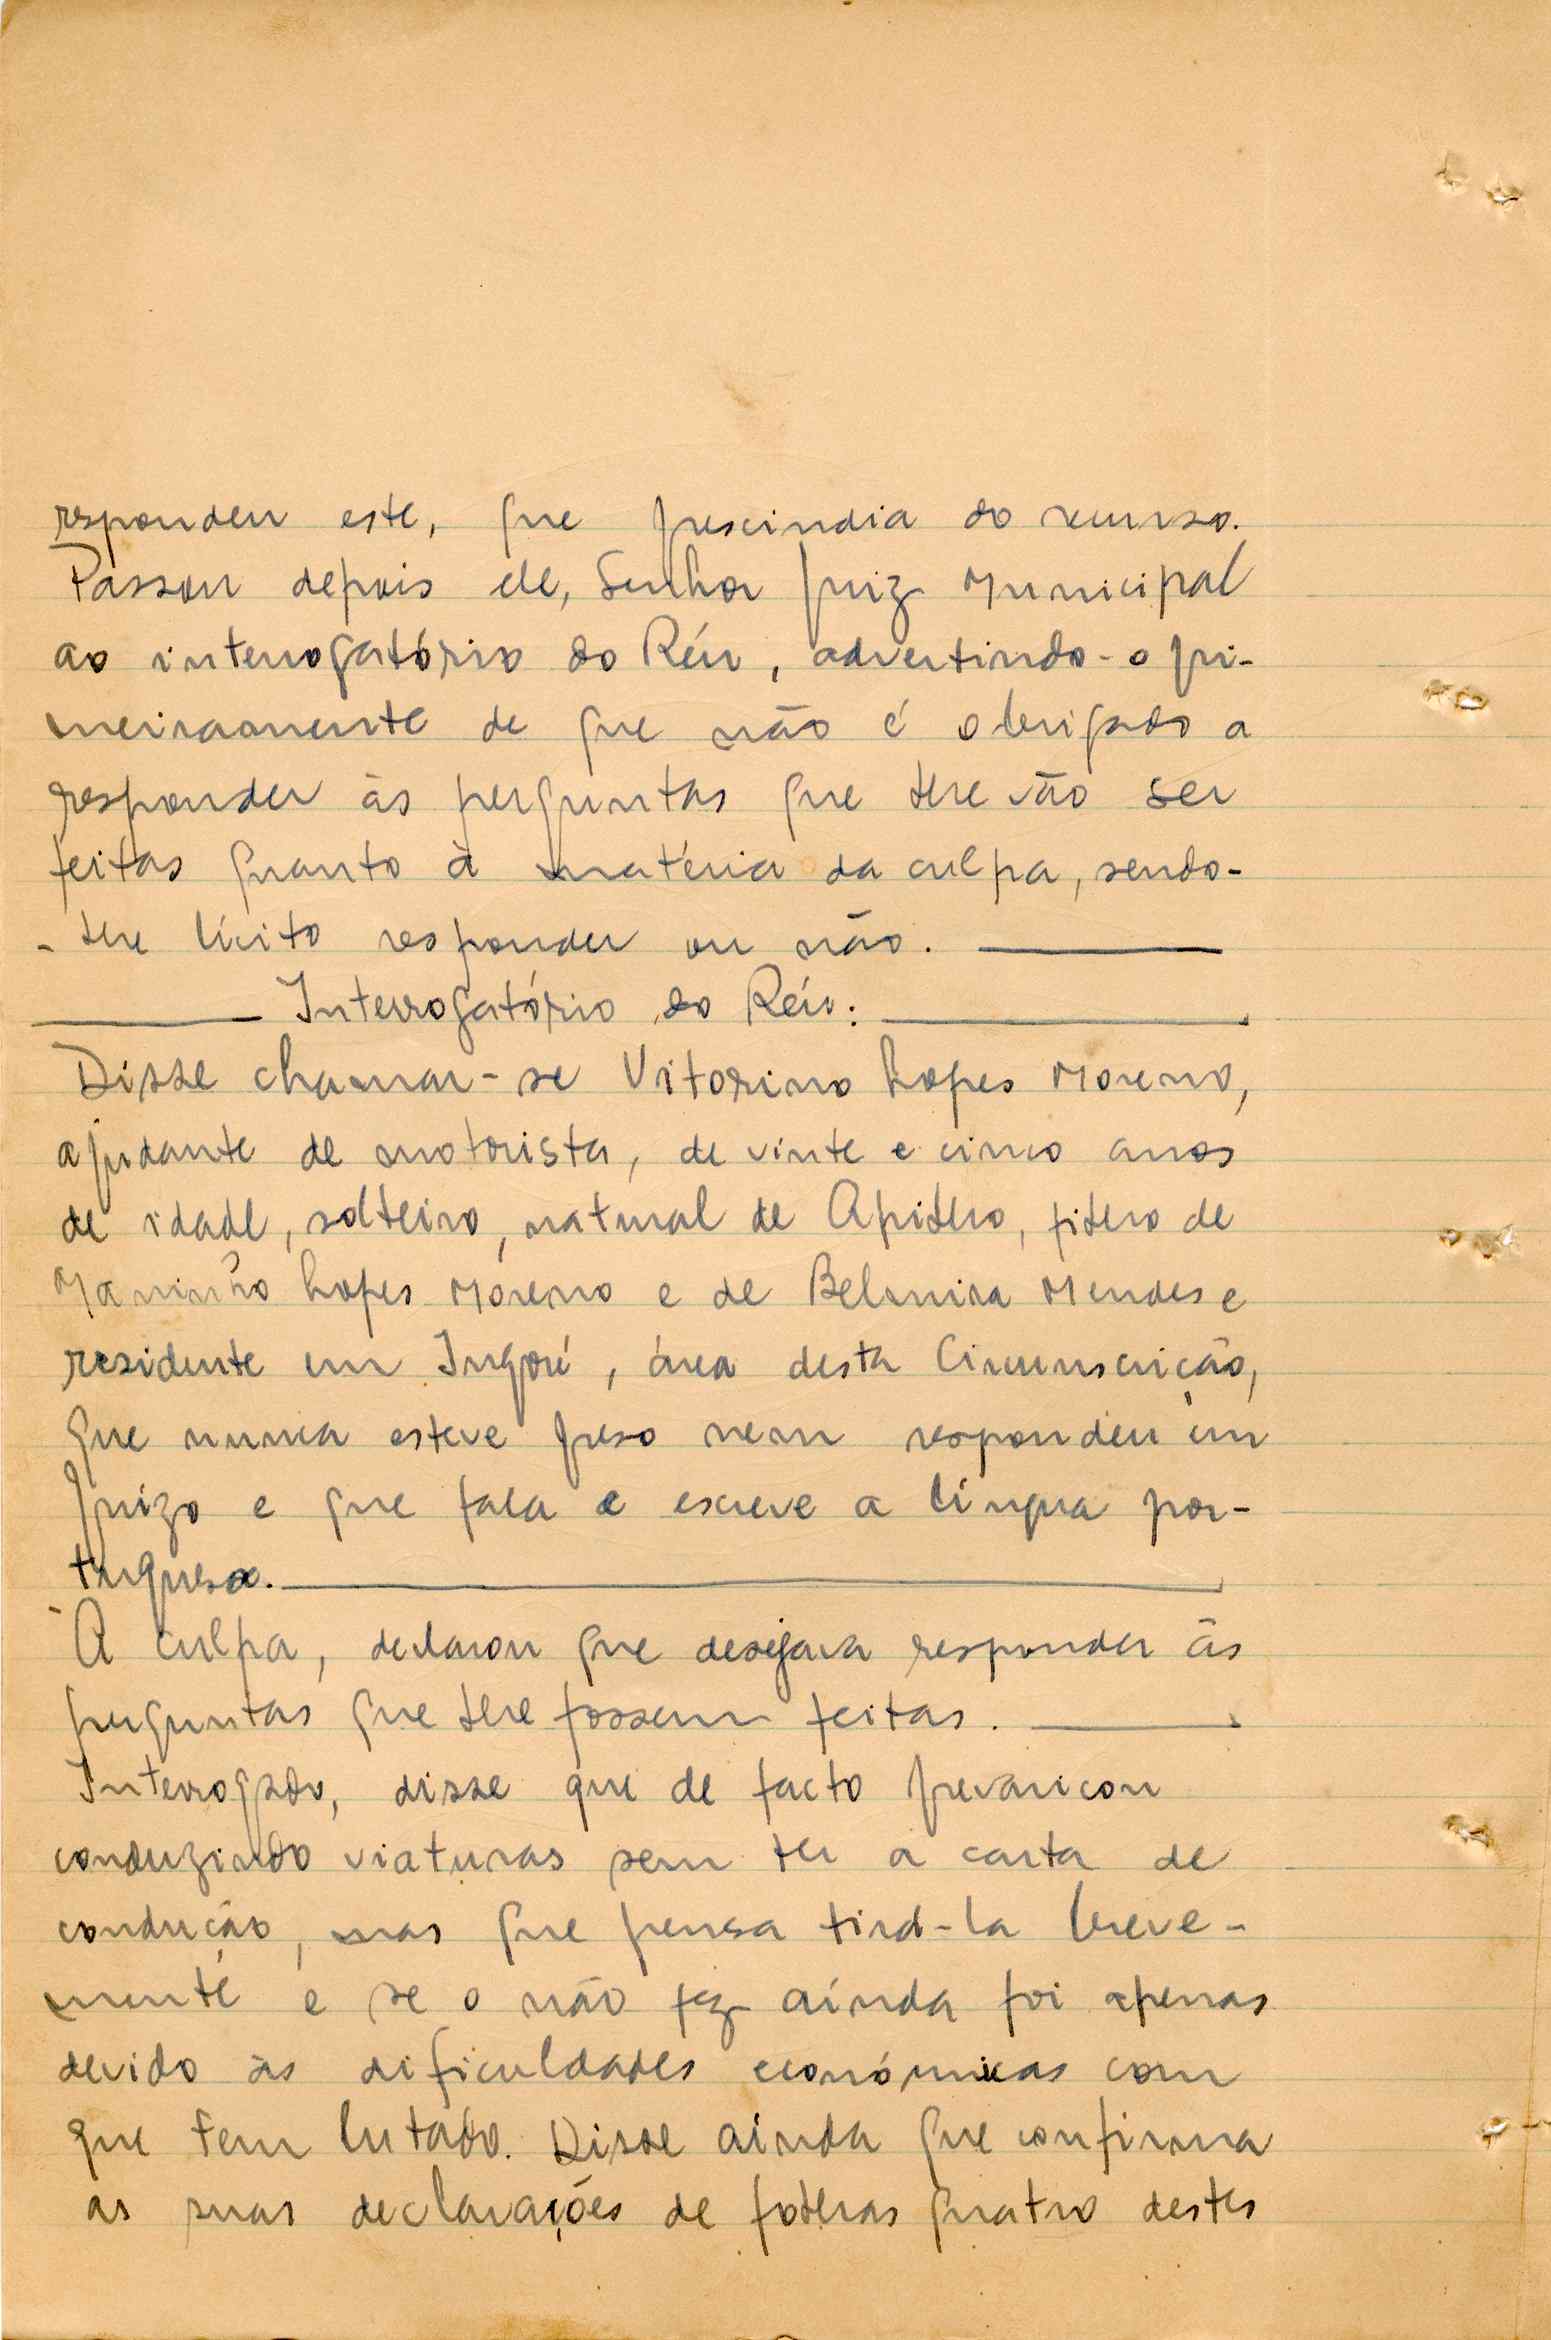 respondeu este, que prescindia do recurso.
Passou depois ele, Senhor Juiz Municipal
ao interrogatório do Réu, advertindo-o pri-
meiramente de que não é obrigado a
responder às perguntas que lhe vão ser
feitas quanto à matéria da culpa, sendo-
-lhe lícito responder ou não.
Interrogatório do Réu:
Disse chamar-se Vitorino Lopes Moreno,
ajudante de motorista, de vinte e cinco anos
de idade, solteiro, natural de Apilho, filho de
Maninho Lopes Moreno e de Belmira Mendes e
residente em Ingoré, área desta Circunscrição,
que nunca esteve preso nem respondeu em
Juizo e que fala e escreve a língua por-
tuguesa.
À culpa, declarou que desejava responder às
perguntas que lhe fossem feitas.
Interrogado, disse que de facto prevaricou
conduzindo viaturas sem ter a carta de
condução, mas que pensa tirá-la breve-
mente e se o não fez ainda foi apenas
devido às dificuldades económicas com
que tem lutado. Disse ainda que confirma
as suas declarações de folhas quatro destes